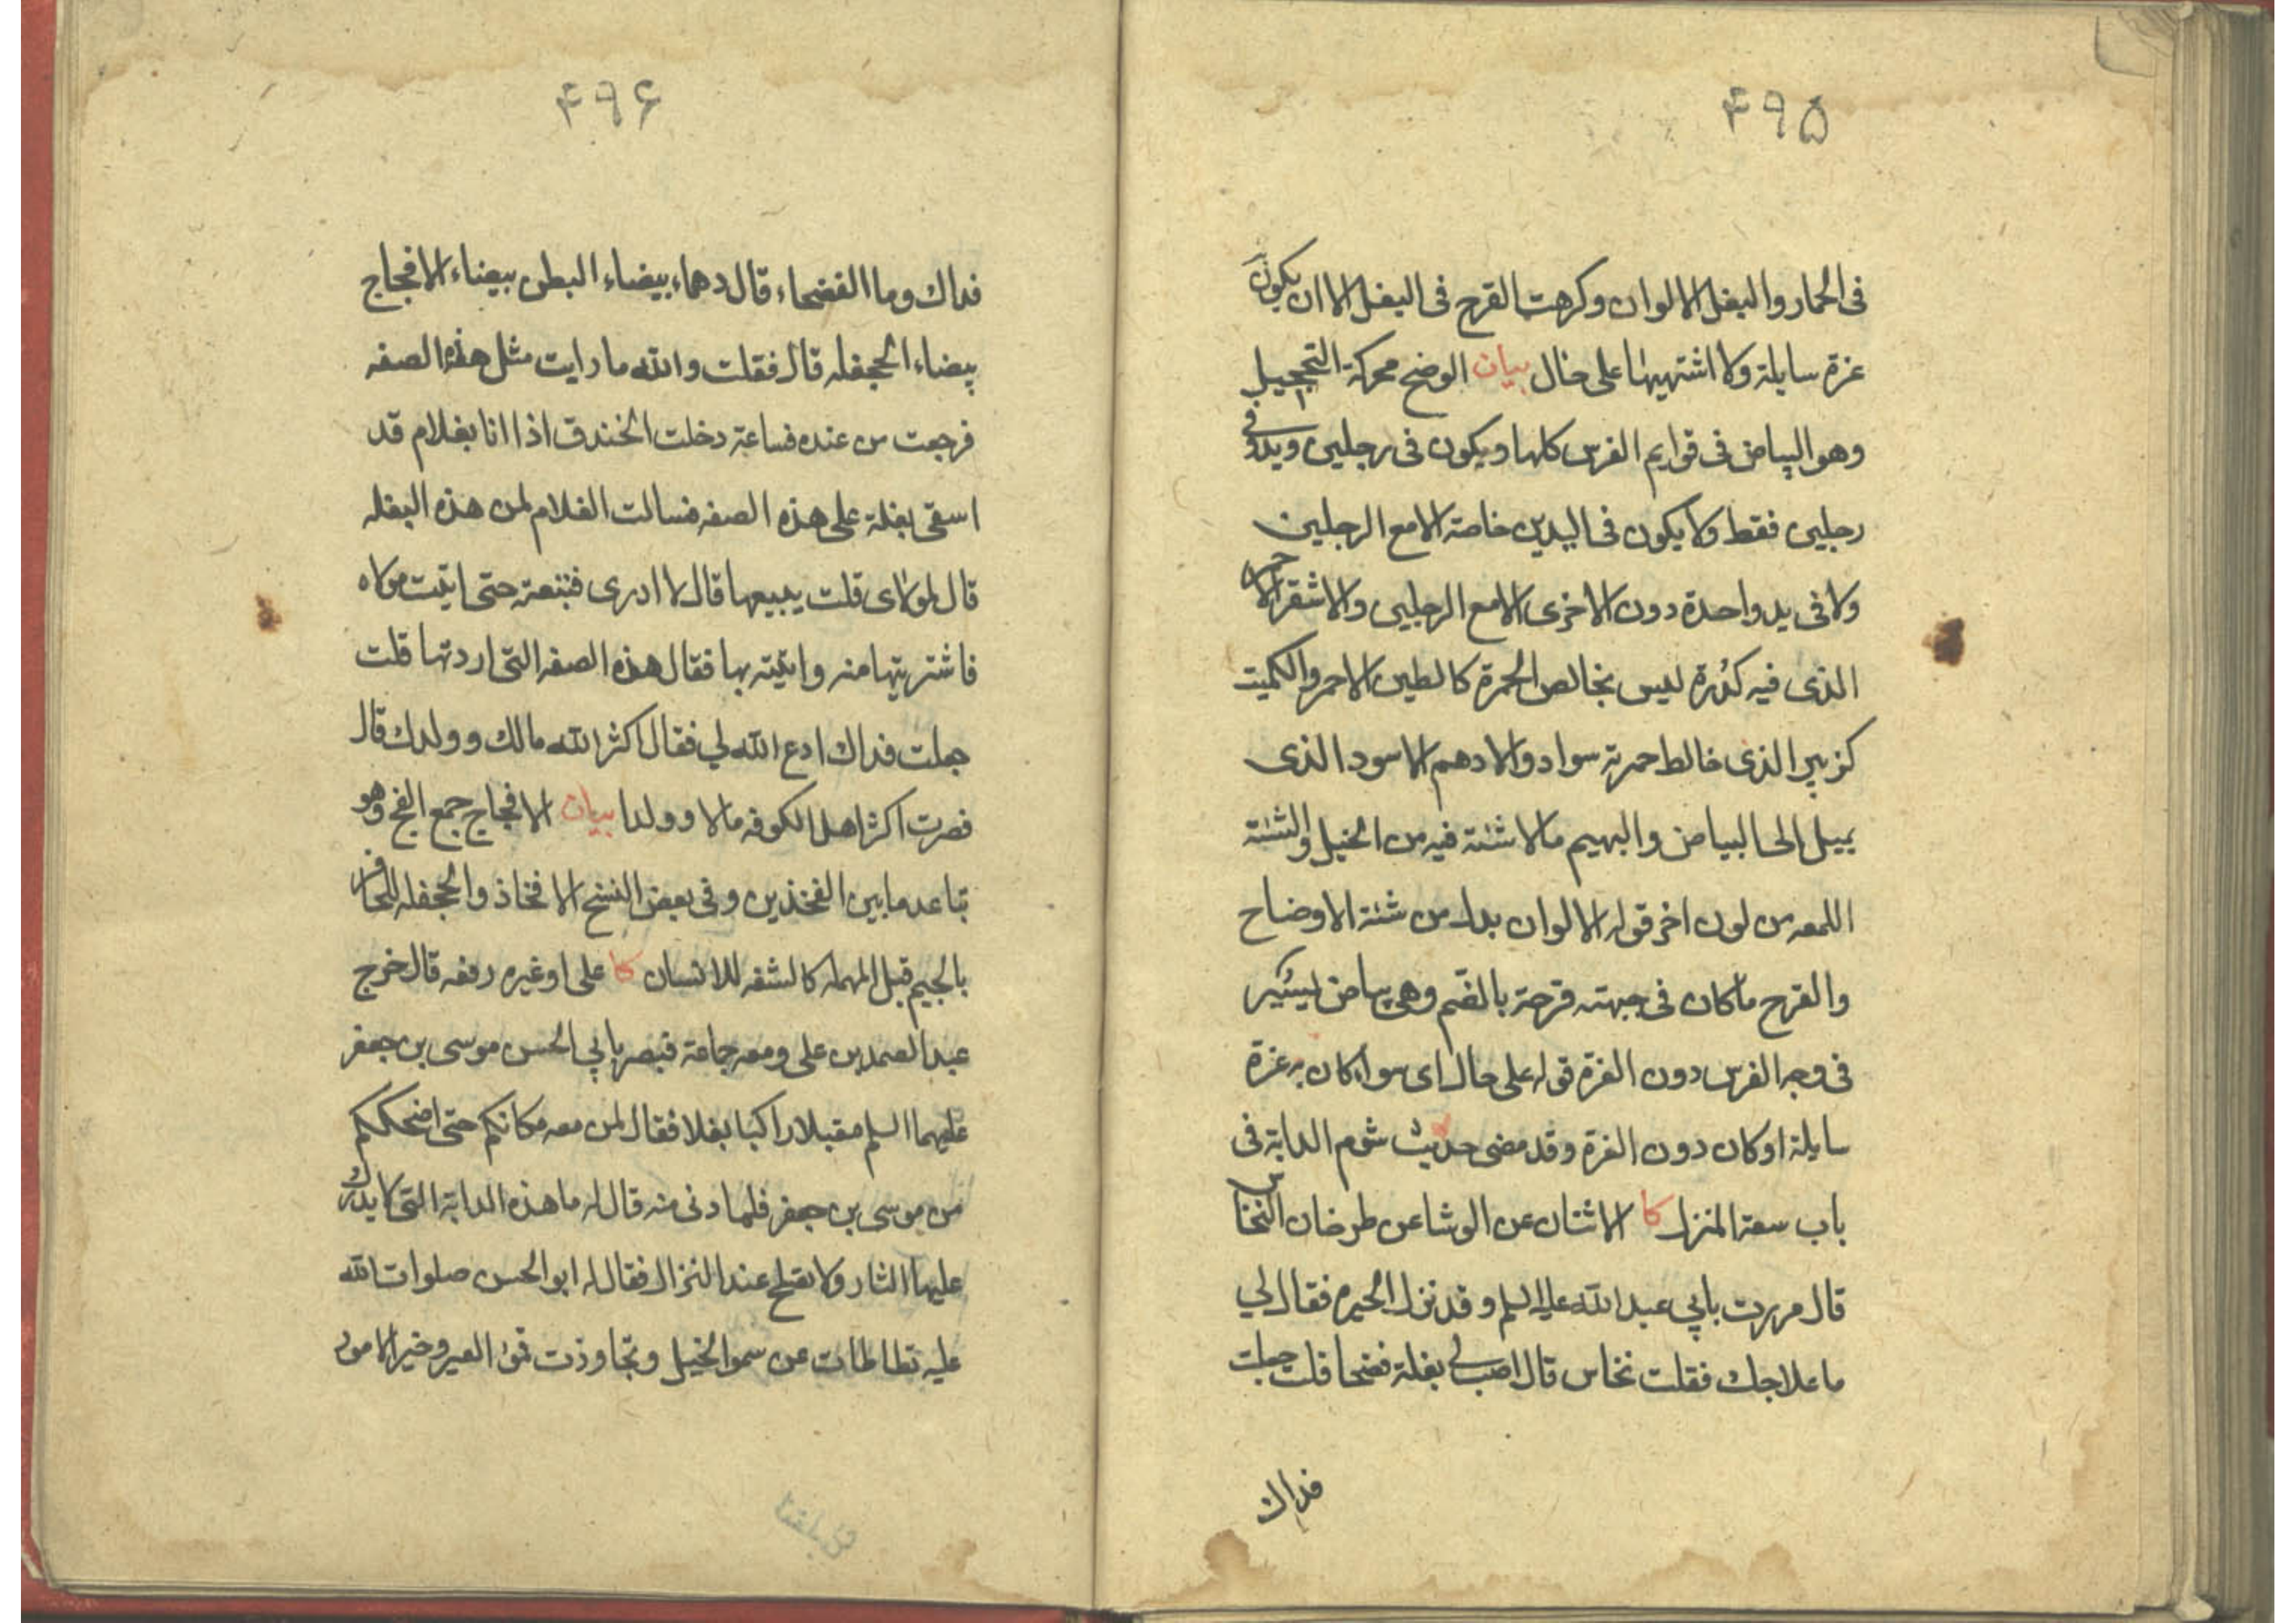 ۴۹۵
فى الحمار والبغل الالوان وكرهت القرح فى البغل الا ان يكون
غرة سايلة ولا اشتهيها على حال بيان الوضح محركة التحجيل
وهو البياض فى قوايم الفرس كلها ويكون فى رجلين ويد وفى
رجلين فقط ولا يكون فى اليدين خاصة الا مع الرجلين
ولا فى يد واحدة دون الاخرى الا مع الرجلين والاشقر الاحمر
الذى فيه كدرة ليس بخالص الحمرة كالطين الاحمر والكميت
كزبير الذى خالط حمرته سواد والادهم الاسود الذى
يميل الى البياض والبهيم مالا شئة فيه من الخيل والشئة
اللمعه من لون اخر قوله الالوان بدل من شئة الاوضاح
والقرح ما كان فى جبهته قرحة بالضم وهى بياض يسير
فى وجه الفرس دون الغرة قوله على حال اى سواء كان به غرة
سايلة او كان دون الغرة وقد مضى حديث شوم الدابة فى
باب سعة المنزل كا الاثنان عن الوشا عن طرخان النخاس
قال مررت بابي عبد الله عليه السلم وقد نزل الحيره فقال لي
ما علاجك فقلت نخاس قال اصب لي بغلة فضحا قلت جعلت
فداك
۴۹۶
فداك وما الفضحاء قال دهماء بيضاء البطن بيضاء الافجاج
بيضاء الحجفله قال فقلت والله ما رايت مثل هذه الصفه
فرجعت من عنده فساعة دخلت الخندق اذا انا بغلام قد
اسقى بغلة على هذه الصفه فسالت الغلام لمن هذه البغله
قال لمولاى قلت يبيعها قال لا ادرى فتبعته حتى اتيت مولاه
فاشتريتها منه واتيته بها فقال هذه الصفه التى اردتها قلت
جعلت فداك ادع الله لي فقال اكثر الله مالك وولدك قال
فصرت اكثر اهل الكوفه مالا وولدا بيان الافجاج جمع الفج وهو
تباعد ما بين الفخذين وفى بعض النسخ الافخاذ والحجفله للحافر
بالجيم قبل المهمله كالشفه للانسان كا على او غيره رفعه قال خرج
عبد الصمد بن على ومعه جماعة فبصر بابي الحسن موسى بن جعفر
عليهما السلم مقبلا راكبا بغلا فقال لمن معه مكانكم حتى اضحككم
من موسى بن جعفر فلما دنى منه قال له ما هذه الدابة التى لا يدرك
عليها الثار ولا تصلح عند النزال فقال له ابو الحسن صلوات الله
عليه تطاطات عن سمو الخيل وتجاوزت قمؤ العير وخير الامور